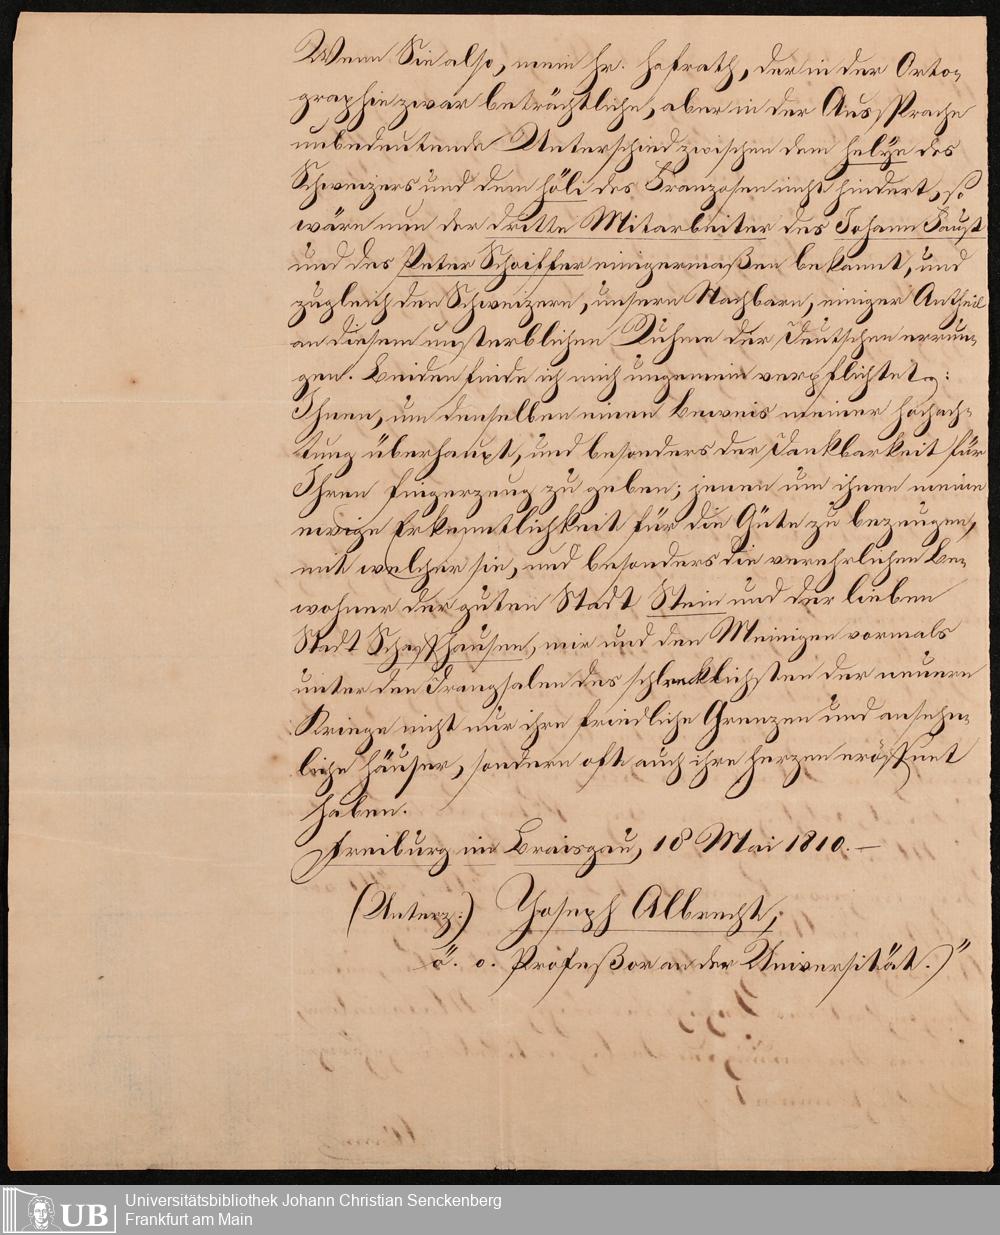 Wenn Sie also, mein Hr. Hofrath, der in der Orto-
graphie zwar beträchtliche, aber in der Aussprache
unbedeutende Unterschied zwischen dem Helye des
Schweizers und dem Höli des Franzosen nicht hindert, so
wäre nun der dritte Mitarbeiter des Johann Faust
und des Peter Schoiffer einigermaßen bekannt, und
zugleich den Schweizern, unsern Nachbarn, einiger Antheil
an diesem unsterblichen Ruhme der Deutschen errun-
gen. Beiden finde ich mich ungemein verpflichtet:
Ihnen, um denselben einen Beweis meiner Hochach-
tung überhaupt, und besonders der Dankbarkeit für
Ihren Fingerzeug zu geben; jenen um ihnen meine
ewige Erkenntlichkeit für die Güte zu bezeugen,
mit welcher sie, und besonders die verehrlichen Be-
wohner der guten Stadt Stein und der lieben
Stadt Schaffhausen, mir und den Meinigen vormals
unter den Drangsalen des schrecklichsten der neuern
Kriege nicht nur ihre friedliche Grenzen und ansehn-
liche Häuser, sondern oft auch ihre Herzen eröffnet
haben.
Freiburg im Braisgau, 18 Mai 1810. —
(Unterz:) Joseph Albrecht,
ö. o. Profeßor an der Universität.)"
UB
Universitätsbibliothek Johann Christian Senckenberg
Frankfurt am Main